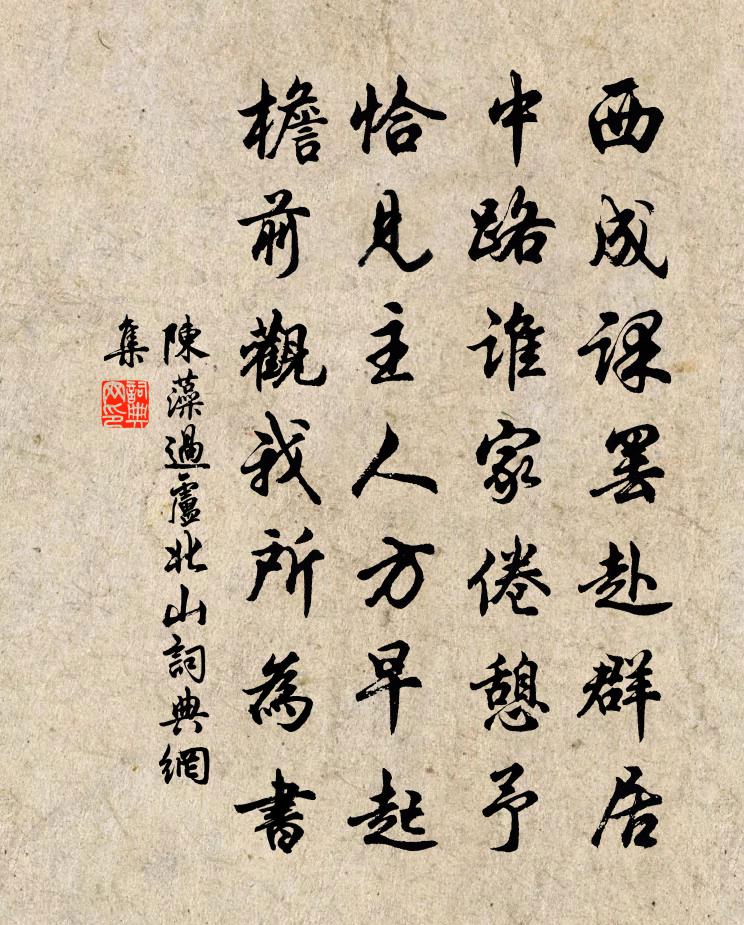 西成課罷赴群居
中路誰家倦憩予
恰見主人方早起
檐前觀我所為書
陳藻過廬北山詞典網
集
詞典
网印